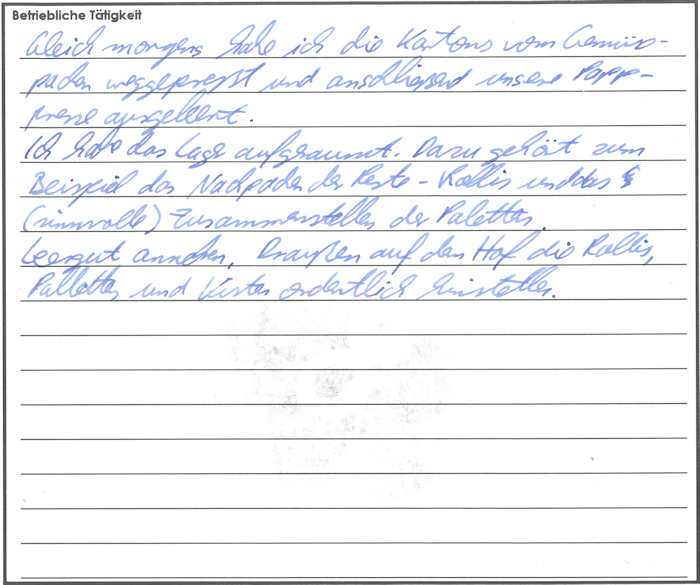 Betriebliche Tätigkeit
Gleich morgens habe ich die Kartons vom Gemüse-
packen weggepresst und anschließend unsere Papp-
presse ausgeleert.
Ich habe das Lager aufgeräumt. Dazu gehört zum
Beispiel das Nachpacken der Reste-Rollis und das
(sinnvolle) Zusammenstellen der Paletten.
Leergut annehmen, Draußen auf den Hof die Rollis,
Palletten und Kisten ordentlich hinstellen.